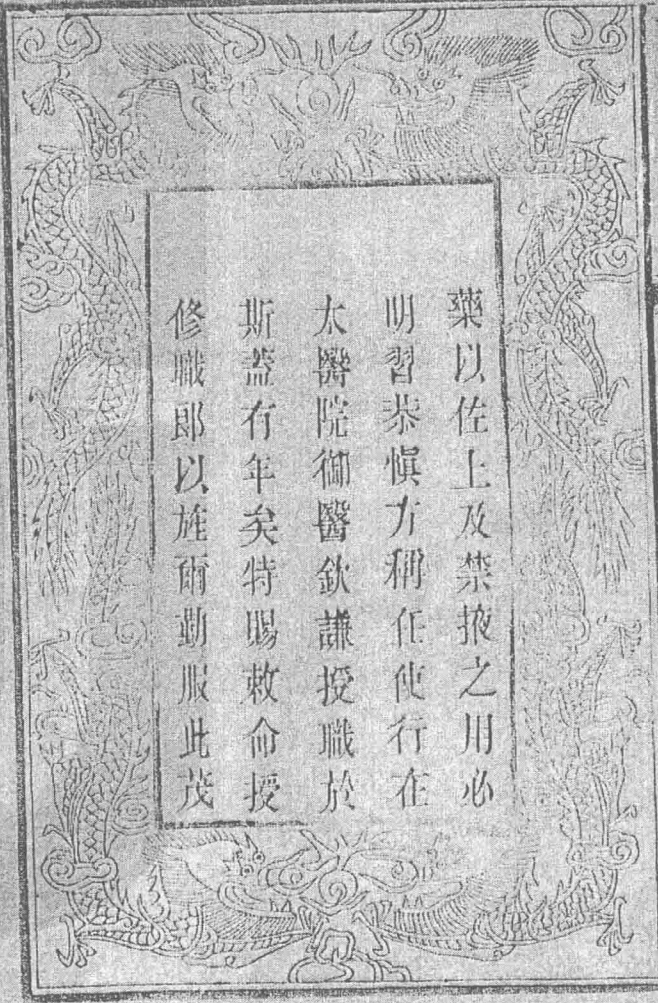 藥以佐上及禁掖之用必
明習恭慎方稱任使行在
太醫院御醫欽謙授職於
斯蓋有年矣特賜敕命授
修職郎以旌爾勤服此茂